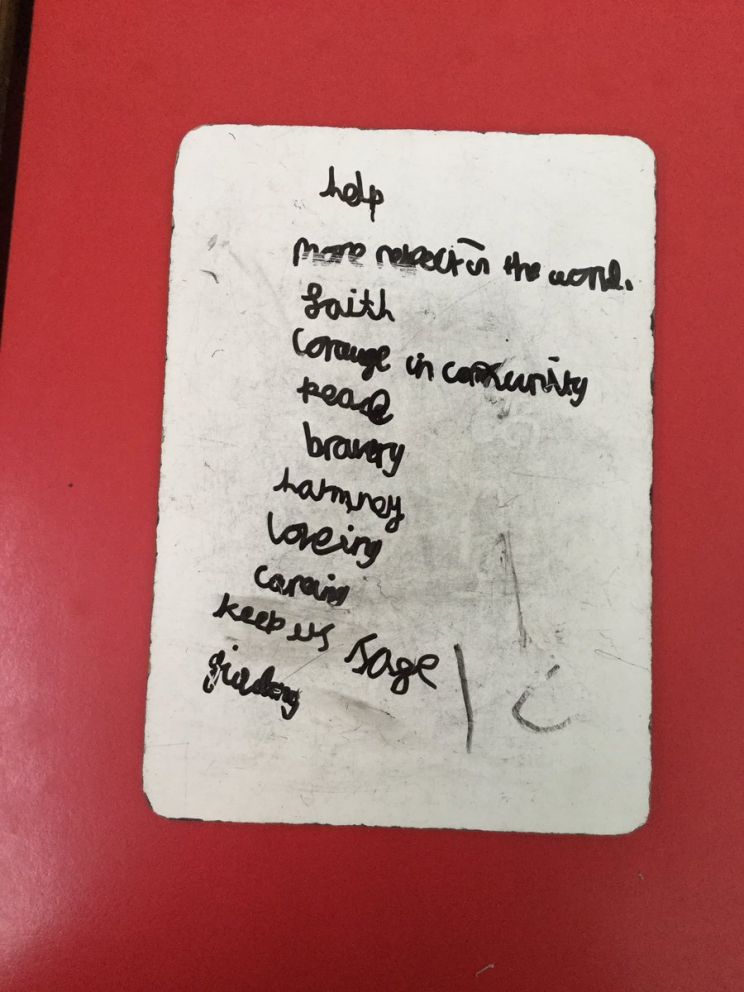 help
more respect in the world.
faith
Corauge in community
peace
bravery
harmney
loveing
careing
keep us safe